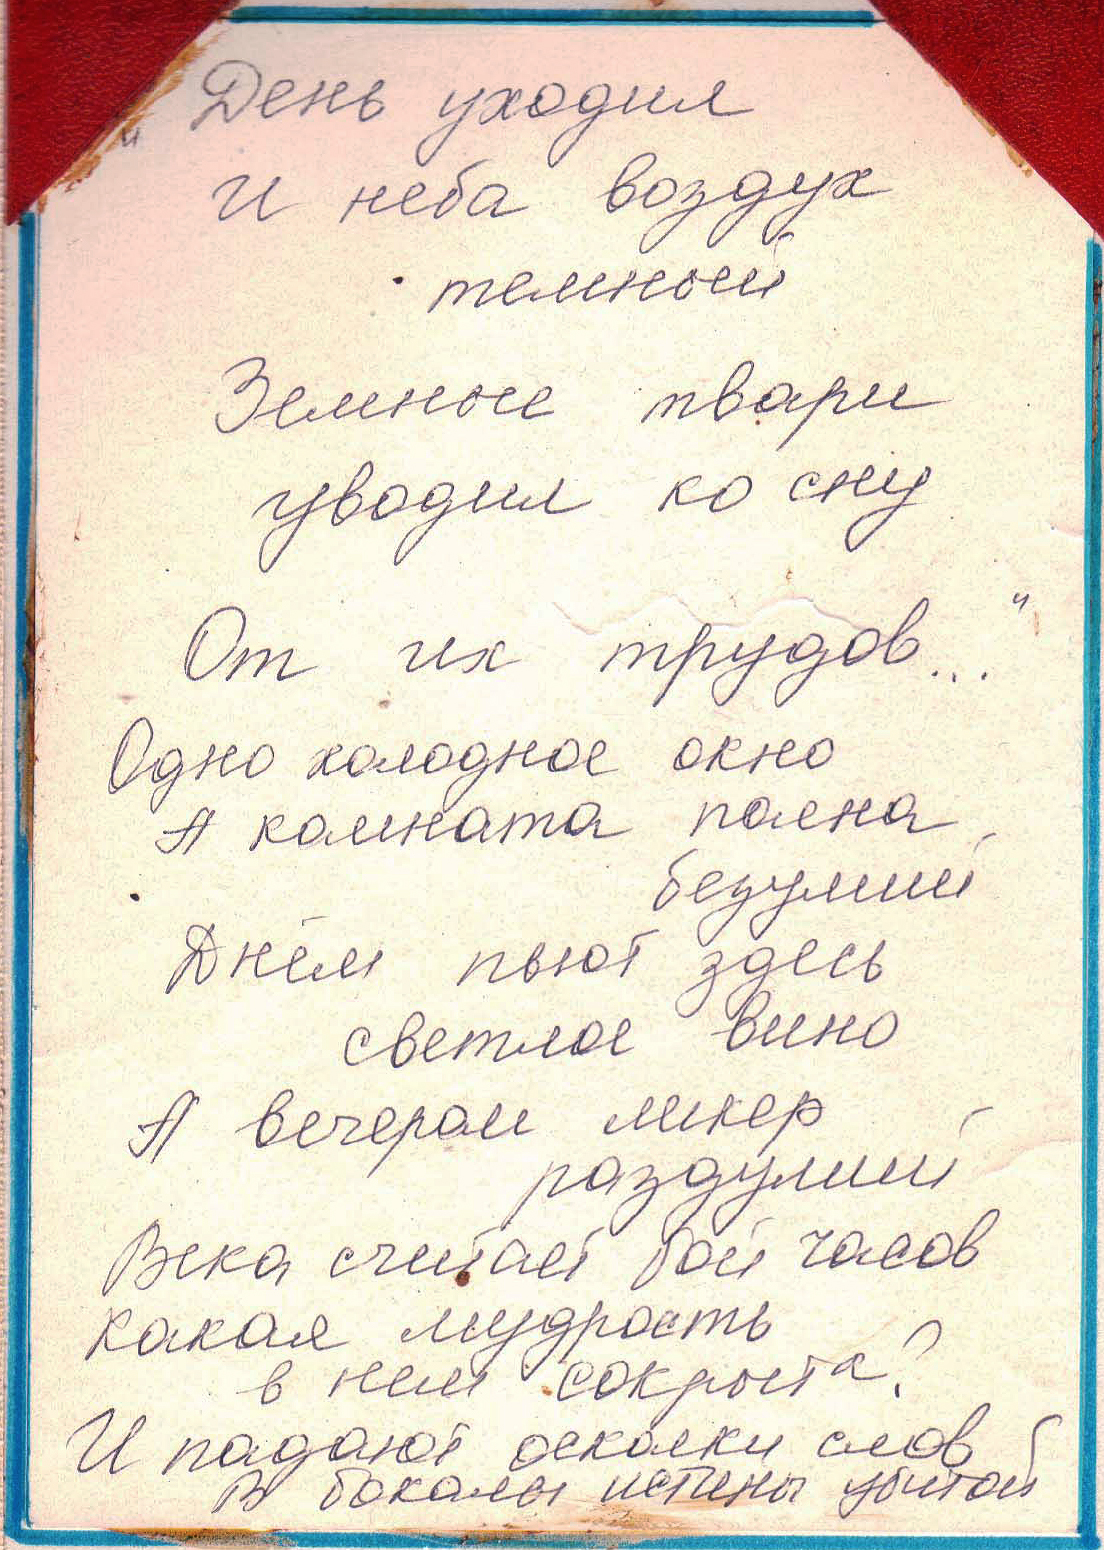 "День уходил
И неба воздух
темный
Земные твари
уводил ко сну
От их трудов..."
Одно холодное окно
А комната полна
безумий
Днём пьют здесь
светлое вино
А вечерам ликер
раздумий
Века считает бой часов
какая мудрость
в нем сокрыта?
И падают осколки слов
В бокалы истины убитой